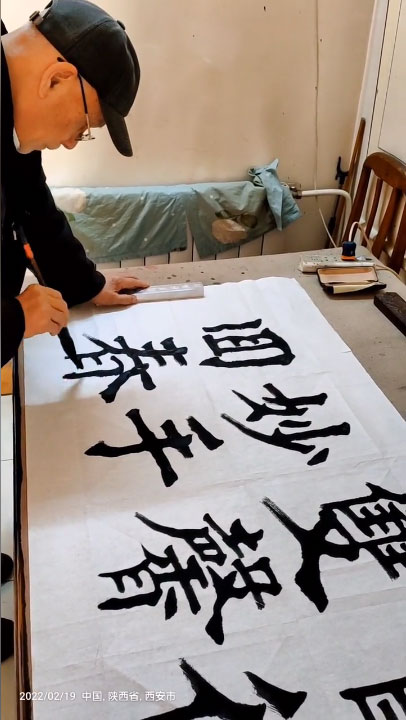 雙馨
妙手
回春
2022/02/19 中国, 陕西省, 西安市